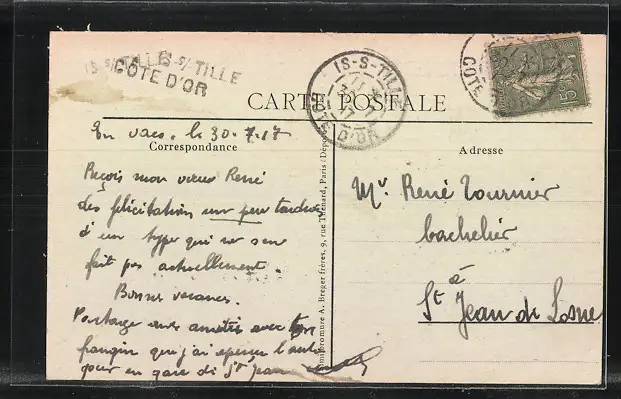 IS-s/-TILLE
CÔTE D'OR
IS-S-TILLE
CÔTE D'OR
CÔTE
15
CARTE POSTALE
En vacs. le 30.7.17
Correspondance
Adresse
Reçois mon vieux René
les félicitations un peu tardives
d'un type qui ne s'en
fait pas actuellement.
Bonnes vacances.
Partage mes amitiés avec ton
frangin que j'ai aperçu l'autre
jour en gare de St Jean
Mr. René Tournier
bachelier
à
St Jean de Losne
Imprimeurs A. Breger frères, 9, rue Thénard, Paris